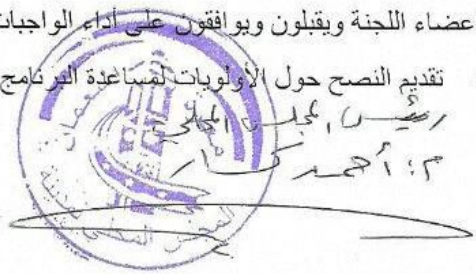 عضاء اللجنة ويقبلون ويوافقون على أداء الواجبات
تقديم النصح حول الأولويات لمساعدة البرنامج
رئيس المجلس المحلي
م: أحمد
المجلس المحلي